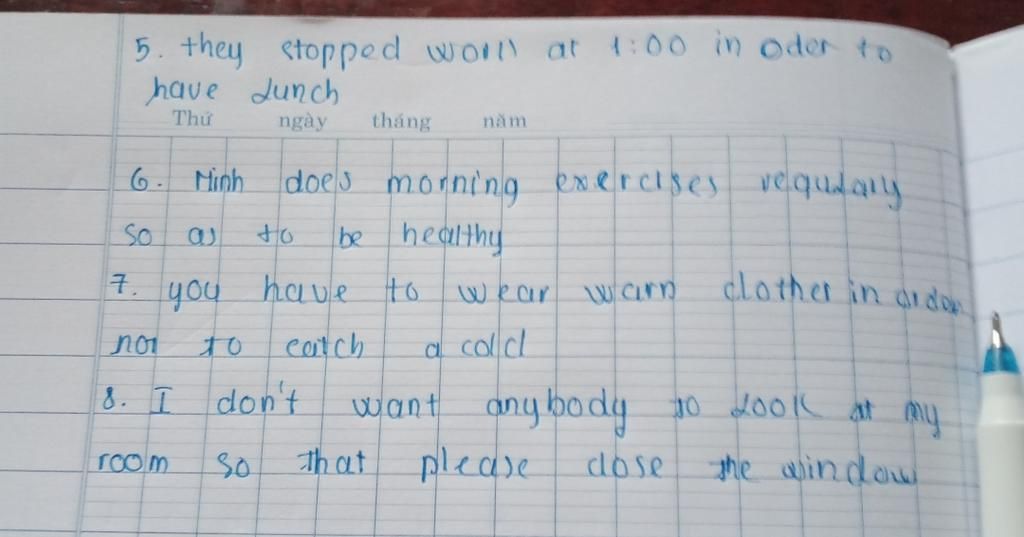 5. they stopped work at 1:00 in oder to
have lunch
Thứ ngày tháng năm
6. Minh does morning exercises regulary
so as to be healthy
7. you have to wear warn clother in order
not to catch a cold
8. I don't want anybody to look at my
room so that please close the window